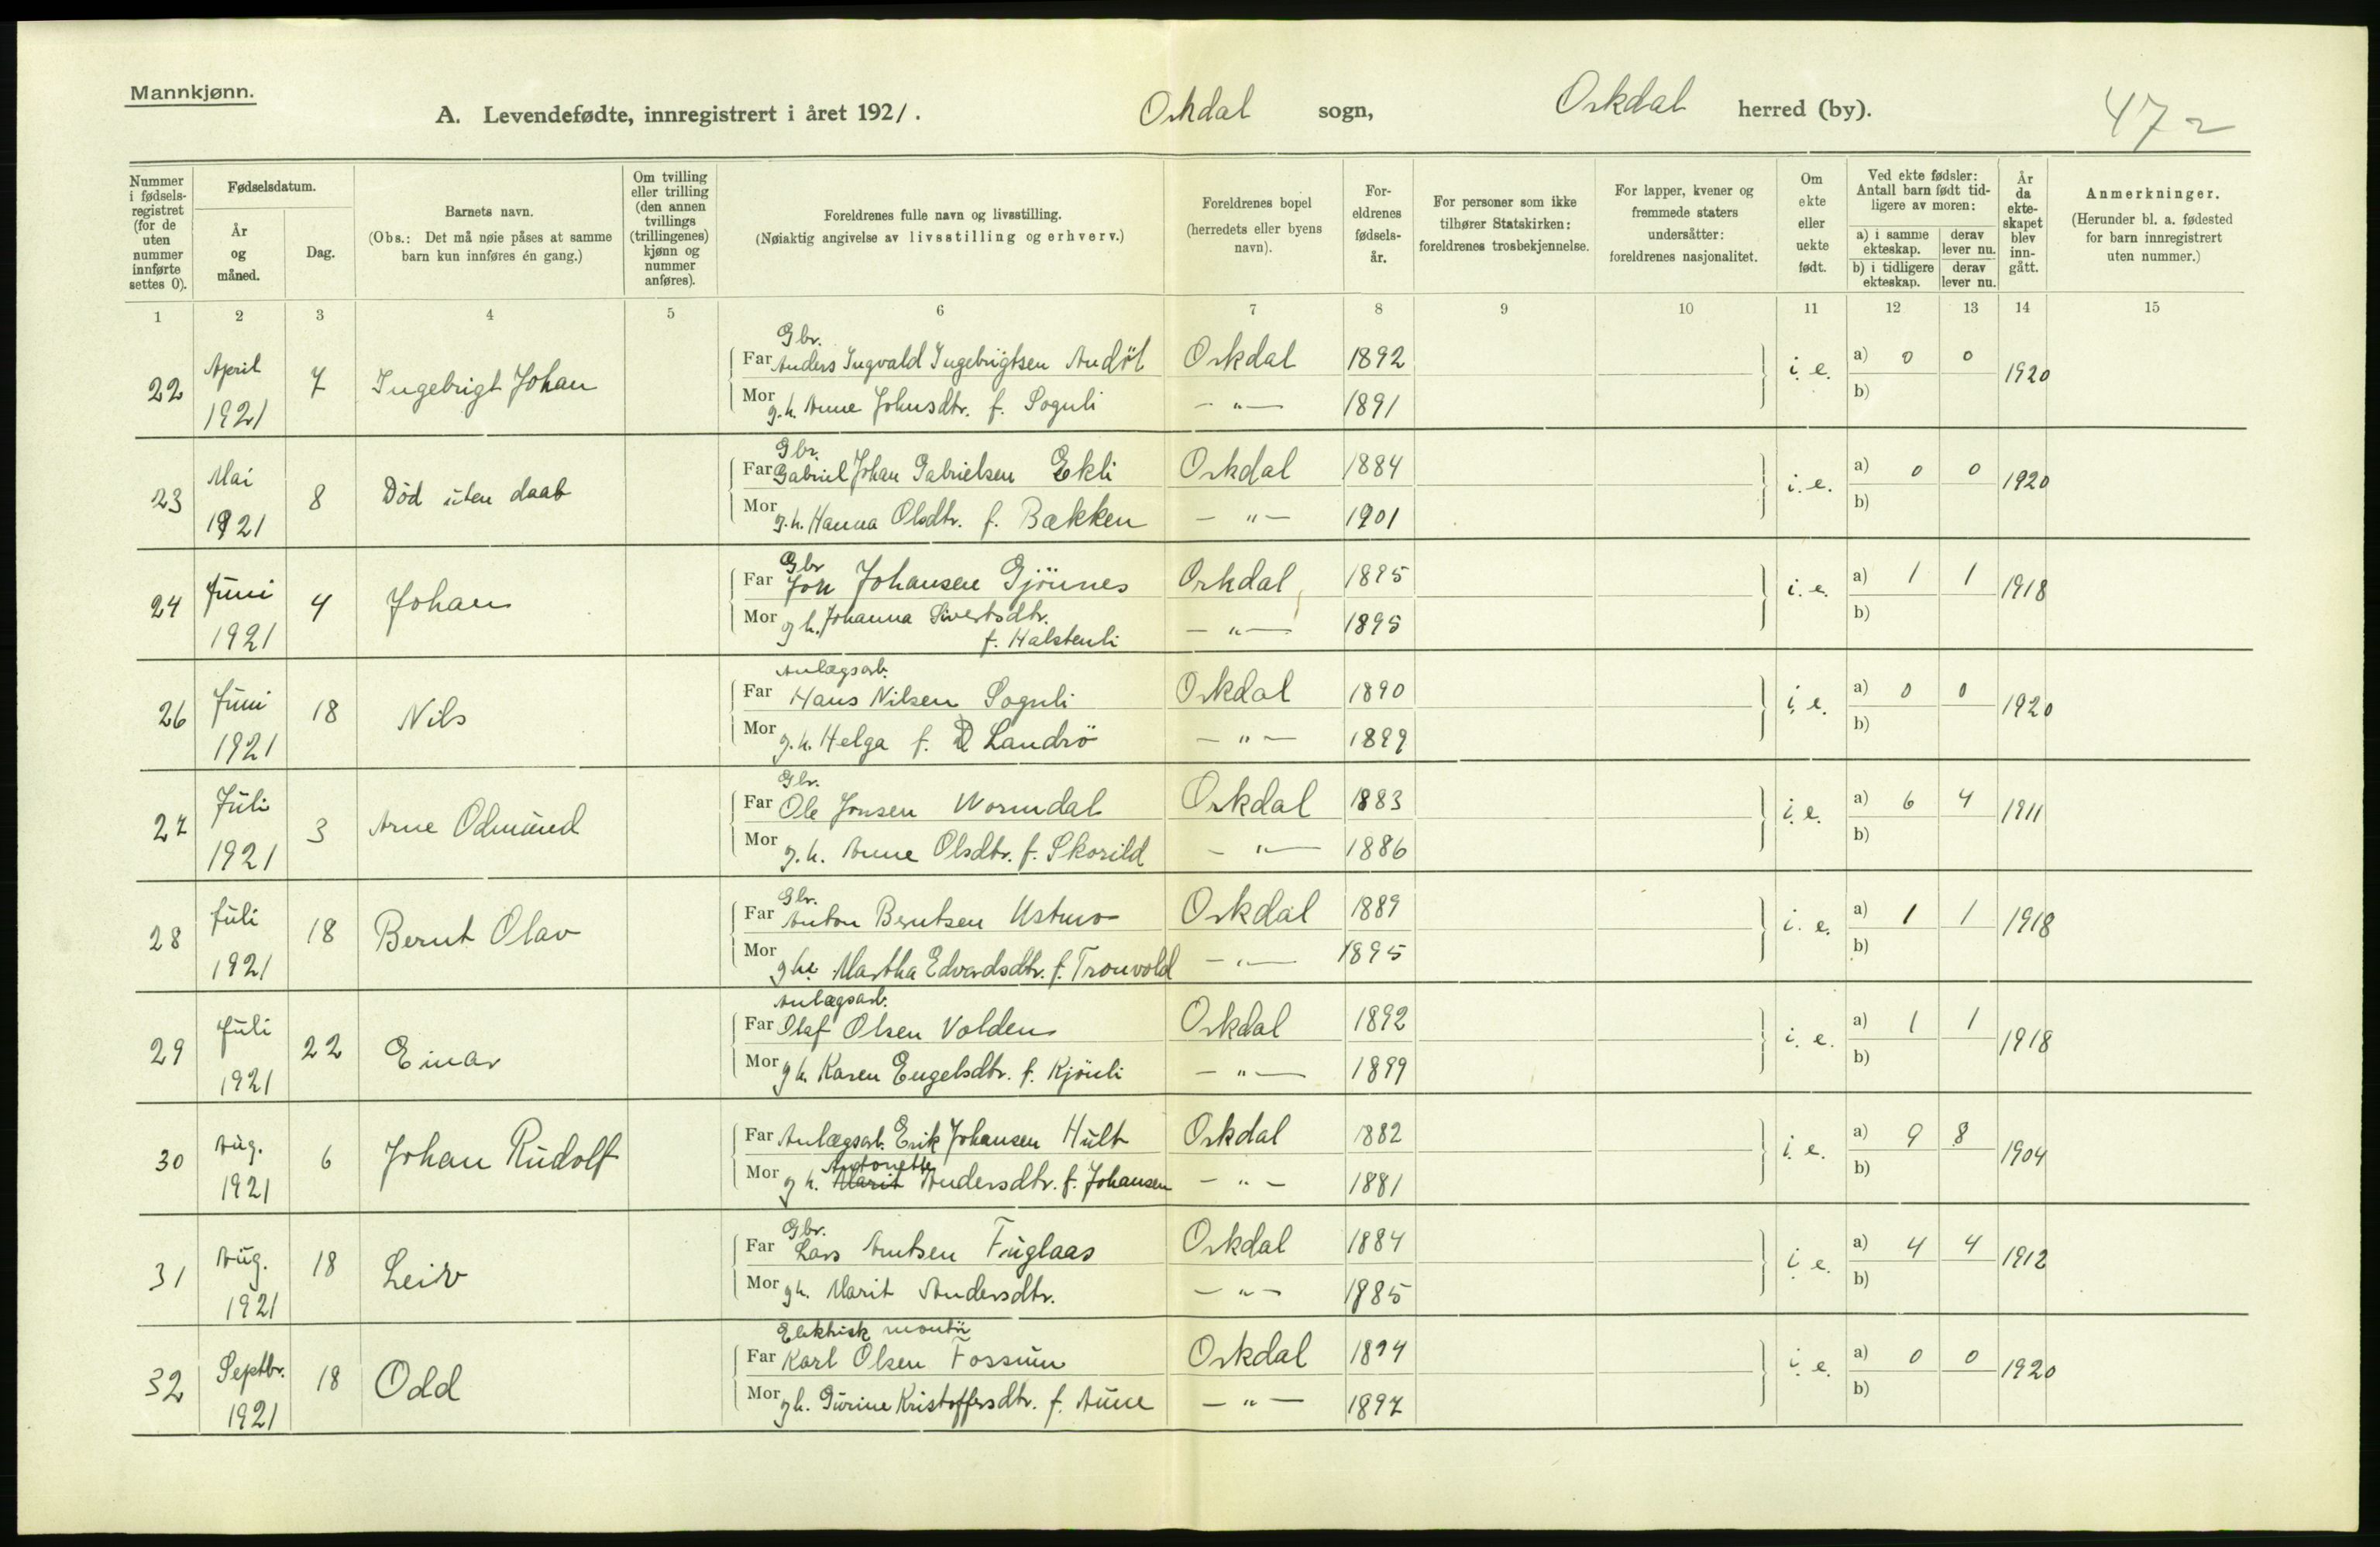 Mannkjønn.
A. Levendefødte, innregistrert i året 1921.
Orkdal sogn, Orkdal herred (by).
472
Nummer i fødselsregistret (for de uten nummer innførte settes 0).
Fødselsdatum.
År og måned.
Dag.
Barnets navn.
(Obs.: Det må nøie påses at samme barn kun innføres én gang.)
Om tvilling eller trilling (den annen tvillings (trillingenes) kjønn og nummer anføres).
Foreldrenes fulle navn og livsstilling.
(Nøiaktig angivelse av livsstilling og erhverv.)
Foreldrenes bopel (herredets eller byens navn).
Foreldrenes fødselsår.
For personer som ikke tilhører Statskirken: foreldrenes trosbekjennelse.
For lapper, kvener og fremmede staters undersåtter: foreldrenes nasjonalitet.
Om ekte eller uekte født.
Ved ekte fødsler: Antall barn født tidligere av moren:
a) i samme ekteskap. derav lever nu.
b) i tidligere ekteskap. derav lever nu.
År da ekteskapet blev inngått.
Anmerkninger.
(Herunder bl. a. fødested for barn innregistrert uten nummer.)
1 2 3 4 5 6 7 8 9 10 11 12 13 14 15
Gbr.
22 April 1921 7 Ingebrigt Johan Far Anders Ingvald Ingebrigtsen Andöl Orkdal 1892 i. e. a) 0 0 1920
Mor g.h. Anne Johnsdtr. f. Soguli — " — 1891 b)
Gbr.
23 Mai 1921 8 Död uten daab Far Gabriel Johan Gabrielsen Ekli Orkdal 1884 i. e. a) 0 0 1920
Mor g.h. Hanna Olsdtr. f. Bækken — " — 1901 b)
Gbr
24 Juni 1921 4 Johan Far Jon Johansen Gjönnes Orkdal 1895 i. e. a) 1 1 1918
Mor g h. Johanna Sivertsdtr. — " — 1895 b)
f. Halstenli
Anlægsarb.
26 Juni 1921 18 Nils Far Hans Nilsen Soguli Orkdal 1890 i. e. a) 0 0 1920
Mor g.h. Helga f. Landrö — " — 1899 b)
Gbr.
27 Juli 1921 3 Arne Odmund Far Ole Jonsen Wormdal Orkdal 1883 i. e. a) 6 4 1911
Mor g.h. Anne Olsdtr. f. Skorild — " — 1886 b)
Gbr.
28 Juli 1921 18 Bernt Olav Far Anton Berntsen Ustmo Orkdal 1889 i. e. a) 1 1 1918
Mor g h. Martha Edvardsdtr. f. Tronvold — " — 1895 b)
Anlægsarb.
29 Juli 1921 22 Einar Far Olaf Olsen Volden Orkdal 1892 i. e. a) 1 1 1918
Mor g h. Karen Engelsdtr. f. Kjönli — " — 1899 b)
30 Aug. 1921 6 Johan Rudolf Far Anlægsarb. Erik Johansen Hult Orkdal 1882 i. e. a) 9 8 1904
Antonette
Mor g h. Marit Andersdtr. f. Johansen — " — 1881 b)
Gbr.
31 Aug. 1921 18 Leiv Far Lars Arntsen Fuglaas Orkdal 1884 i. e. a) 4 4 1912
Mor gh. Marit Andersdtr. — " — 1885 b)
Elektrisk montör
32 Septbr. 1921 18 Odd Far Karl Olsen Fossum Orkdal 1894 i. e. a) 0 0 1920
Mor gh. Gurine Kristoffersdtr. f. Aune — " — 1897 b)